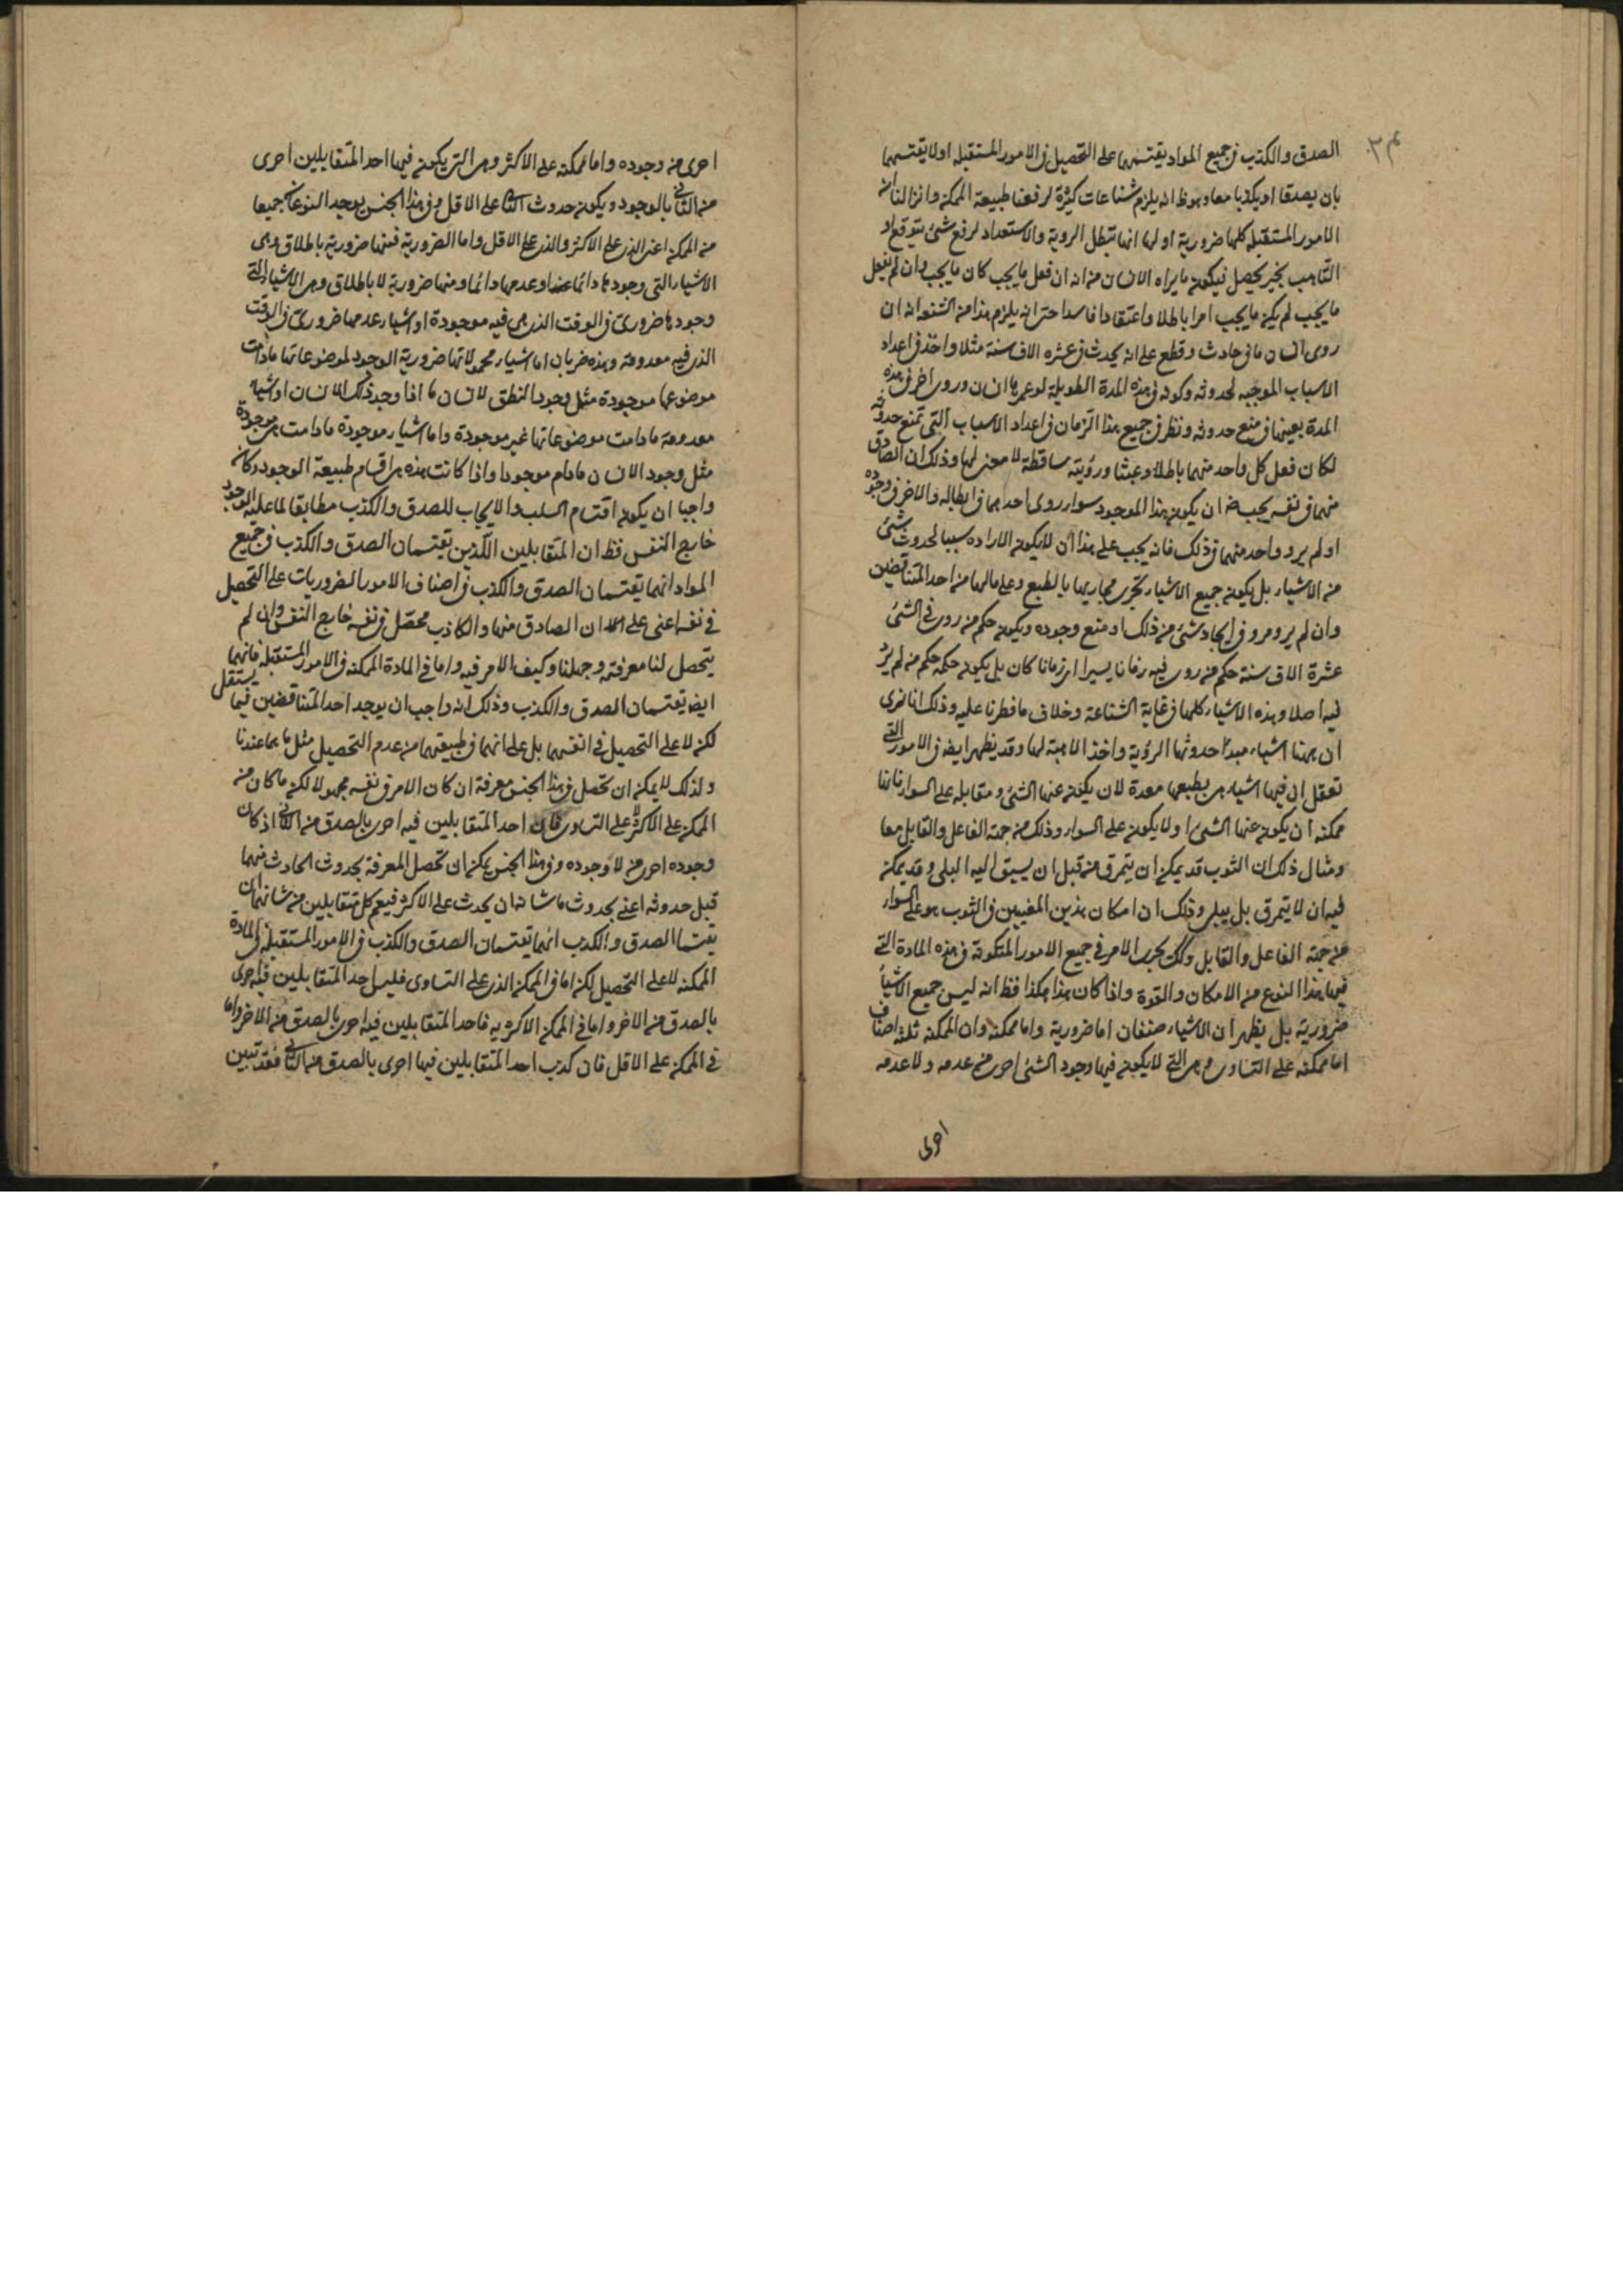 الصدق والكذب فى جميع المواد يقتسمهما على التحصيل فى الامور المستقبلة اولا يقتسمهما
بان يصدقا او يكذبا معا وهو ظ انه يلزم شناعات كثيرة لرفعنا طبيعة الممكن وانزالنا ان
الامور المستقبلة كلها ضرورية اولها انها تبطل الروية والاستعداد لرفع شئ يتوقع او
التاهب بخير يحصل فيكون ما يراه الانسان من انه ان فعل ما يجب كان ما يجب وان لم يفعل
ما يجب لم يكن ما يجب امرا باطلا واعتقادا فاسدا حتى انه يلزم هذا من الشنعة انه ان
روى انسان ما فى حادث وقطع على انه يحدث فى عشره الاف سنة مثلا واخذ فى اعداد
الاسباب الموجبه لحدوثه وكونه فى هذه المدة الطويلة لو عمرها انسان وروى اخر فى هذه
المدة بعينها فى منع حدوثه ونظر فى جميع هذا الزمان فى اعداد الاسباب التى تمنع حدوثه
لكان فعل كل واحد منهما باطلا وعبثا ورؤيته ساقطة لا معنى لها وذلك ان الصادق
منهما فى نفسه يجب ضه ان يكون هذا الموجود سواء روى احدهما فى ابطاله والاخر فى وجوده
او لم يرو واحد منهما فى ذلك فانه يجب على هذا ان لا يكون الاراده سببا لحدوث شئ
من الاشياء بل يكون جميع الاشياء تجرى مجاريها بالطبع وعلى ما لها من احد المتناقضين
وان لم يرو مرو فى ايجاد شئ من ذلك او منع وجوده ويكون حكم من روى فى الشئ
عشرة الاف سنة حكم من روى فيه زمانا يسيرا اى زمانا كان بل يكون حكمه حكم من لم يرو
فيه اصلا وهذه الاشياء كلها فى غاية الشناعة وخلاف ما فطرنا عليه وذلك انا نرى
ان ههنا اشياء مبدأ حدوثها الرؤية واخذ الاهبة لها وقد يظهر ايضه فى الامور التى
تعقل ان فيها اشياء هى بطبعها معدة لان يكون عنها الشئ ومقابله على السواء فانها
ممكنه ان يكون عنها الشئ او لا يكون على السواء وذلك من جهة الفاعل والقابل معا
ومثال ذلك ان الثوب قد يمكن ان يتمزق من قبل ان يسبق اليه البلى وقد يمكن
فيه ان لا يتمزق بل يبلى وذلك ان امكان هذين المعنيين فى الثوب هو على السواء
من جهة الفاعل والقابل وكك يجرى الامر فى جميع الامور المتكونة فى هذه المادة التى
فيها هذا النوع من الامكان والقوة واذا كان هذا هكذا فظ انه ليس جميع الاشياء
ضرورية بل يظهر ان الاشياء صنفان اما ضرورية واما ممكنه وان الممكنه ثلثة اصناف
اما ممكنه على التساوى وهى التى لا يكون فيها وجود الشئ احرى من عدمه ولا عدمه
احرى
احرى من وجوده واما ممكنه على الاكثر وهى التى يكون فيها احد المتقابلين احرى
من الثانى بالوجود ويكون حدوث الثانى على الاقل وفى هذا الجنس يوجد النوعان جميعا
من الممكن اعنى الذى على الاكثر والذى على الاقل واما الضرورية فمنها ضرورية باطلاق وهى
الاشياء التى وجودها دائما او عدمها دائما ومنها ضرورية لا باطلاق وهى الاشياء التى
وجودها ضرورى فى الوقت الذى هى فيه موجودة او اشياء عدمها ضرورى فى الوقت
الذى فيه معدومة وهذه ضربان اما اشياء محمولاتها ضرورية الوجود لموضوعاتها مادامت
موضوعها موجودة مثل وجود النطق لانسان ما اذا وجد ذلك الانسان او اشياء
معدومة مادامت موضوعاتها غير موجودة واما اشياء موجودة مادامت هى موجودة
مثل وجود الانسان مادام موجودا واذا كانت هذه هى اقسام طبيعة الوجود وكان
واجبا ان يكون اقتسام السلب والايجاب للصدق والكذب مطابقا لما عليه الوجود
خارج النفس فظ ان المتقابلين الذين يقتسمان الصدق والكذب فى جميع
المواد انهما يقتسمان الصدق والكذب فى اصناف الامور الضروريات على التحصيل
فى نفسه اعنى على ان الصادق منها والكاذب محصل فى نفسه خارج النفس وان لم
يتحصل لنا معرفته وجهلنا كيف الامر فيه واما فى المادة الممكنه فى الامور المستقبلة فانهما
ايضه يقتسمان الصدق والكذب وذلك انه واجب ان يوجد احد المتناقضين فيما يستقبل
لكن لا على التحصيل فى انفسهما بل على انهما فى طبيعتهما من عدم التحصيل مثل ما هما عندنا
ولذلك لا يمكن ان تحصل فى هذا الجنس معرفة ان كان الامر فى نفسه مجهولا لكن ما كان من
الممكن على الاكثر لا على التساوى فان احد المتقابلين فيه احرى بالصدق من الثانى اذ كان
وجوده احرى من لا وجوده وفى هذا الجنس يمكن ان تحصل المعرفة بحدوث الحادث منهما
قبل حدوثه اعنى بحدوث ما شانه ان يحدث على الاكثر فيعم كل متقابلين من شانهما ان
يقتسما الصدق والكذب انهما يقتسمان الصدق والكذب فى الامور المستقبلة فى المادة
الممكنه لا على التحصيل لكن اما فى الممكن الذى على التساوى فليس احد المتقابلين فيه احرى
بالصدق من الاخر واما فى الممكن الاكثريه فاحد المتقابلين فيه احرى بالصدق من الاخر واما
فى الممكن على الاقل فان كذب احد المتقابلين فيها احرى بالصدق من الثانى فقد تبين